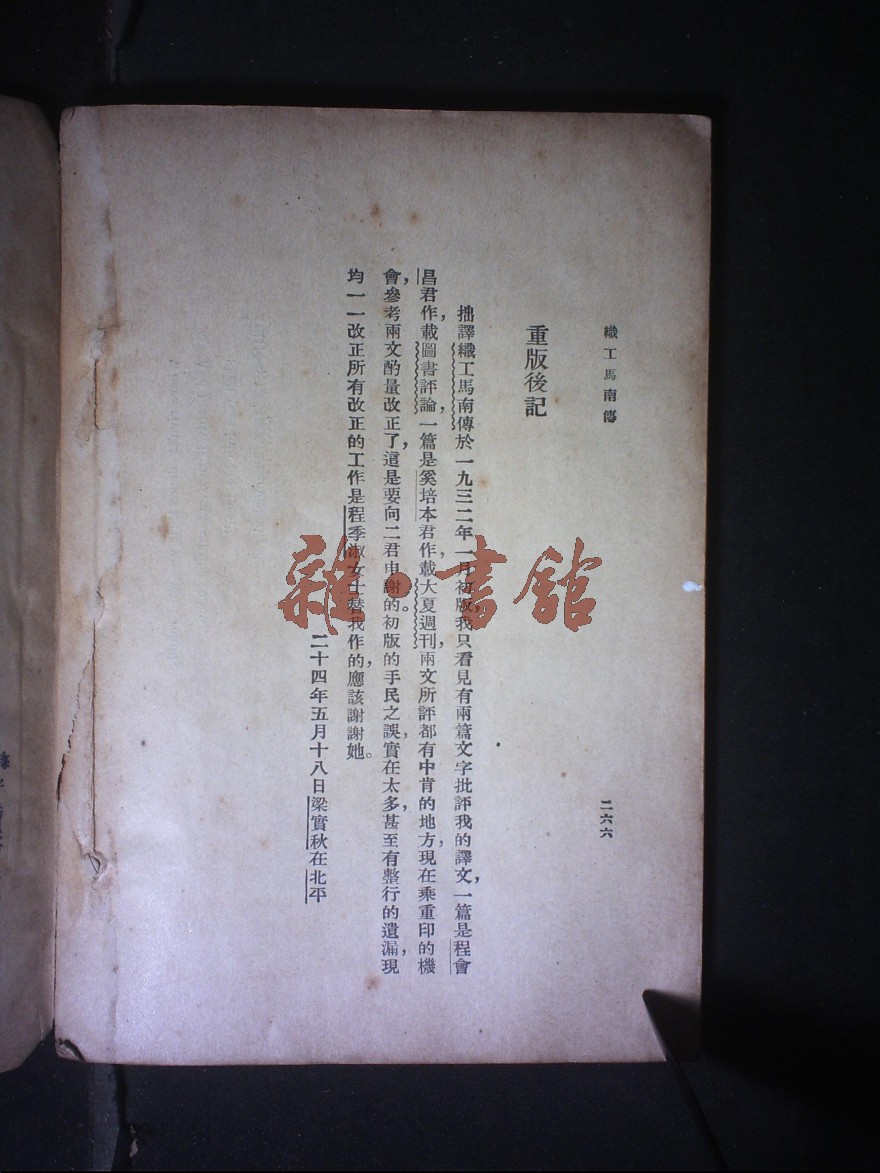 織工馬南傳
二六六
重版後記
拙譯織工馬南傳於一九三二年一月初版，我只看見有兩篇文字批評我的譯文，一篇是程會
昌君作，載圖書評論，一篇是奚培本君作，載大夏週刊，兩文所評都有中肯的地方，現在乘重印的機
會，參考兩文酌量改正了，這是要向二君申謝的。初版的手民之誤，實在太多，甚至有整行的遺漏，現
均一一改正所有改正的工作是程季淑女士替我作的，應該謝謝她。
二十四年五月十八日梁實秋在北平
雜·書館